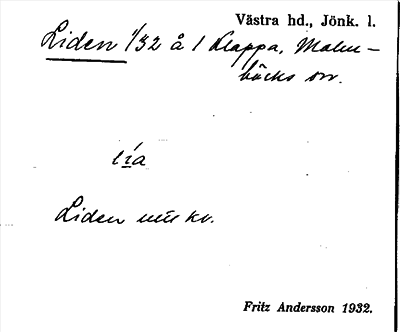 Västra hd., Jönk. l.
Liden 1/32 å 1 Klappa, Malm-
bäcks sn.
lía
Liden kv.
Fritz Andersson 1932.